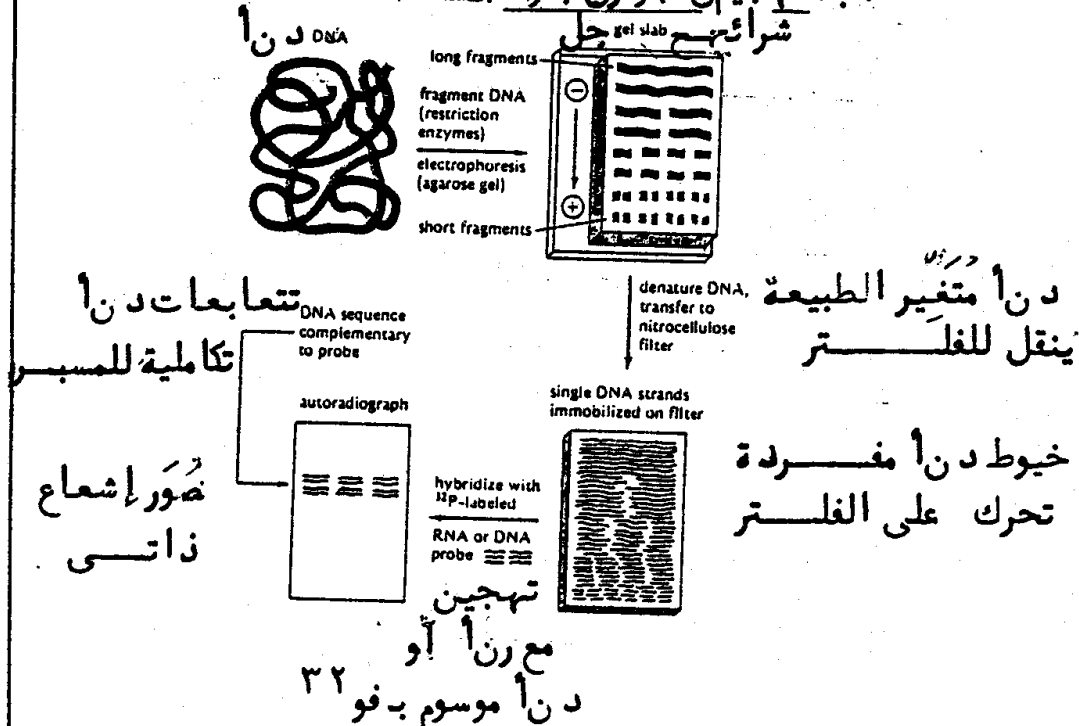 شرائح جل gel slab
د ن أ DNA
long fragments
fragment DNA
(restriction
enzymes)
electrophoresis
(agarose gel)
short fragments
−
+
denature DNA,
transfer to
nitrocellulose
filter
د ن أ مُتَغير الطبيعة
ينقل للفلتر
تتعابعات د ن أ
تكاملية للمسبر
DNA sequence
complementary
to probe
single DNA strands
immobilized on filter
خيوط د ن أ مفردة
تحرك على الفلتر
autoradiograph
صُوَر إشعاع
ذاتى
hybridize with
³²P-labeled
RNA or DNA
probe
تهجين
مع رنأ أو
د ن أ موسوم بـ فو ٣٢